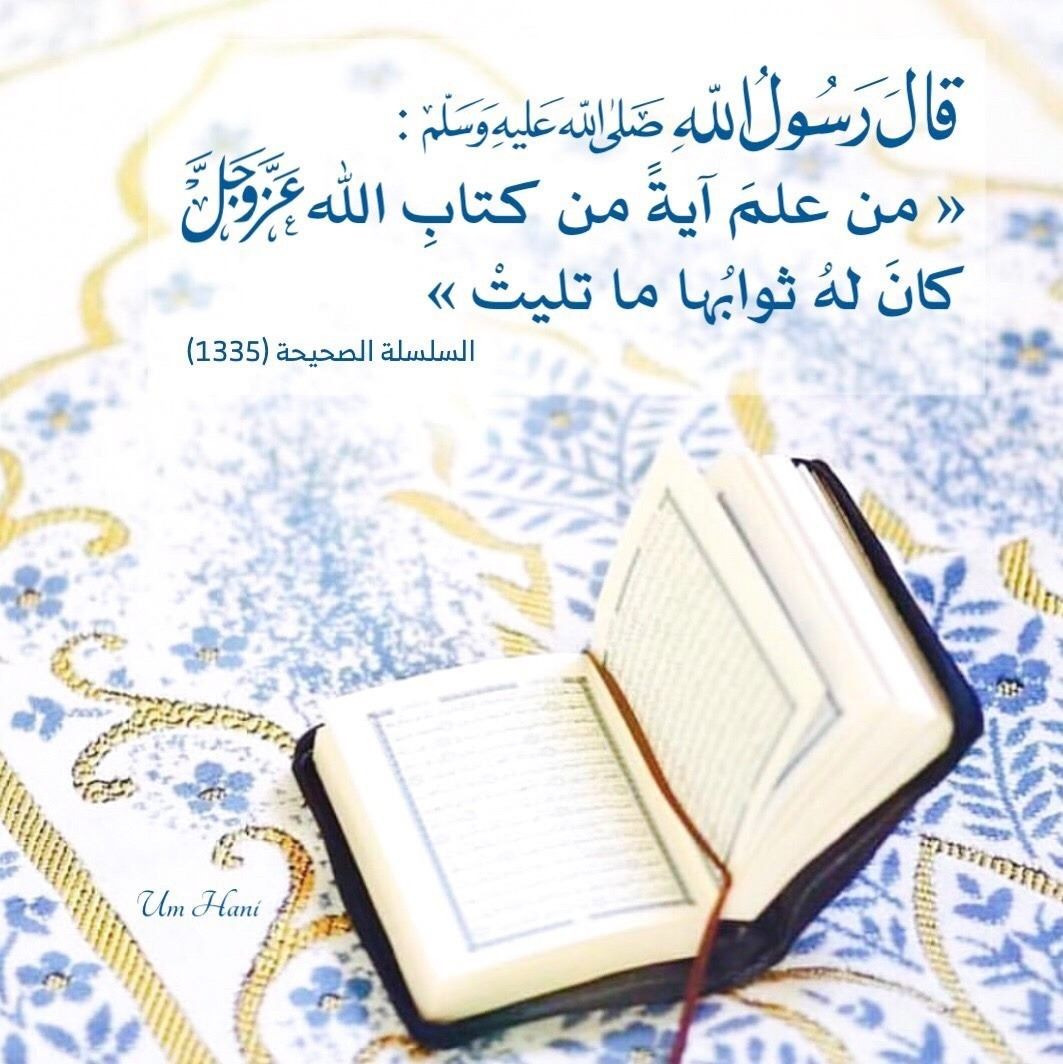 قالَ رَسُولُ اللّٰهِ صَلىٰ اللّٰه عَليهِ وَسَلّمْ :
« من علمَ آيةً من كتابِ الله عَزَّوَجَلَّ
كانَ لهُ ثوابُها ما تليتْ »
السلسلة الصحيحة (1335)
Um Hani